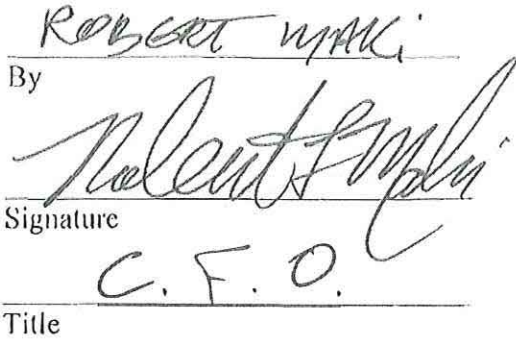 ROBERT MAKi
By
Robert F Maki
Signature
C. F. O.
Title